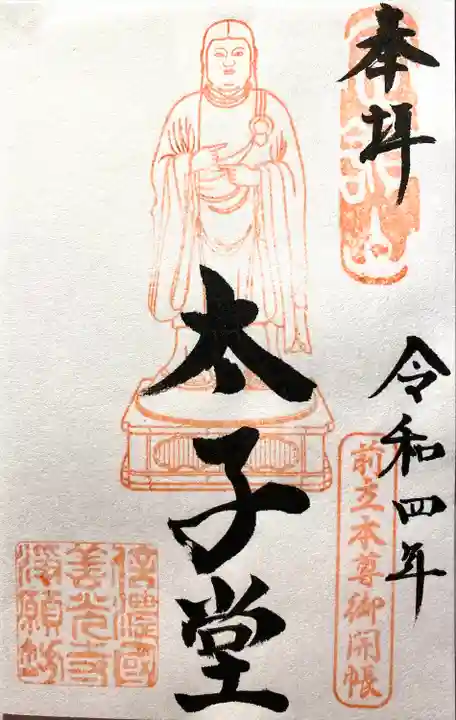 奉拝
令和四年
前立本尊御開帳
太子堂
信濃國
善光寺
淨願坊